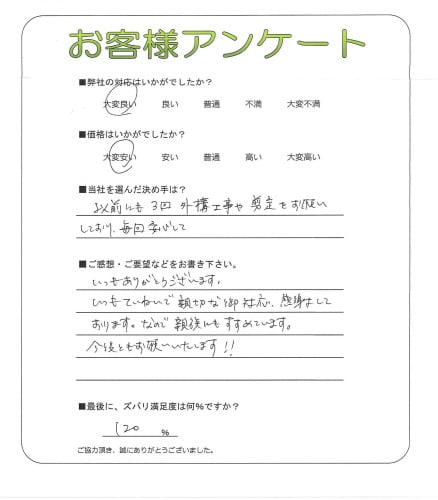 お客様アンケート
■弊社の対応はいかがでしたか?
大変良い 良い 普通 不満 大変不満
■価格はいかがでしたか?
大変安い 安い 普通 高い 大変高い
■当社を選んだ決め手は?
以前にも3回外構工事や剪定をお願い
しており、毎回安心して
■ご感想・ご要望などをお書き下さい。
いつもありがとうございます。
いつもていねいで親切な御対応、感謝して
おります。なので親族にもすすめています。
今後ともお願いいたします!!
■最後に、ズバリ満足度は何%ですか?
120 %
ご協力頂き、誠にありがとうございました。